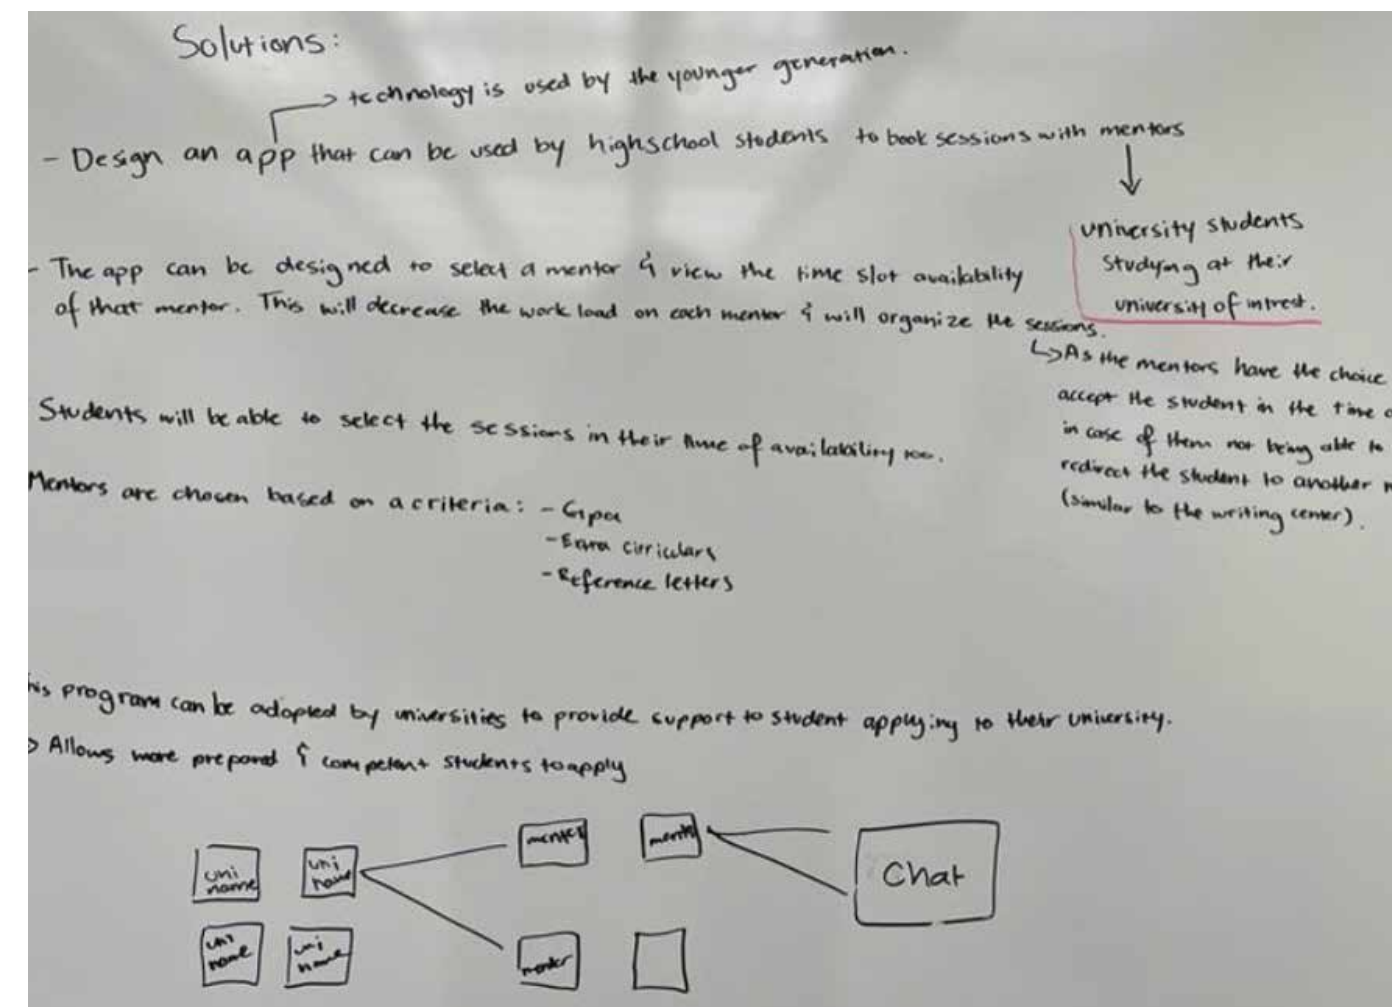 Solutions:
technology is used by the younger generation.
- Design an app that can be used by highschool students to book sessions with mentors
university students
studying at their
university of intrest.
- The app can be designed to select a mentor & view the time slot availability
of that mentor. This will decrease the work load on each mentor & will organize the sessions.
As the mentors have the choice
accept the student in the time
in case of them not being able to
redirect the student to another
(similar to the writing center).
Students will be able to select the sessions in their time of availability too.
Mentors are chosen based on a criteria: - Gpa
- Extra cirriculars
- Reference letters
his program can be adopted by universities to provide support to student applying to their university.
Allows more prepared & competent students to apply
uni
name
uni
name
mentor
mentor
Chat
uni
name
uni
name
mentor